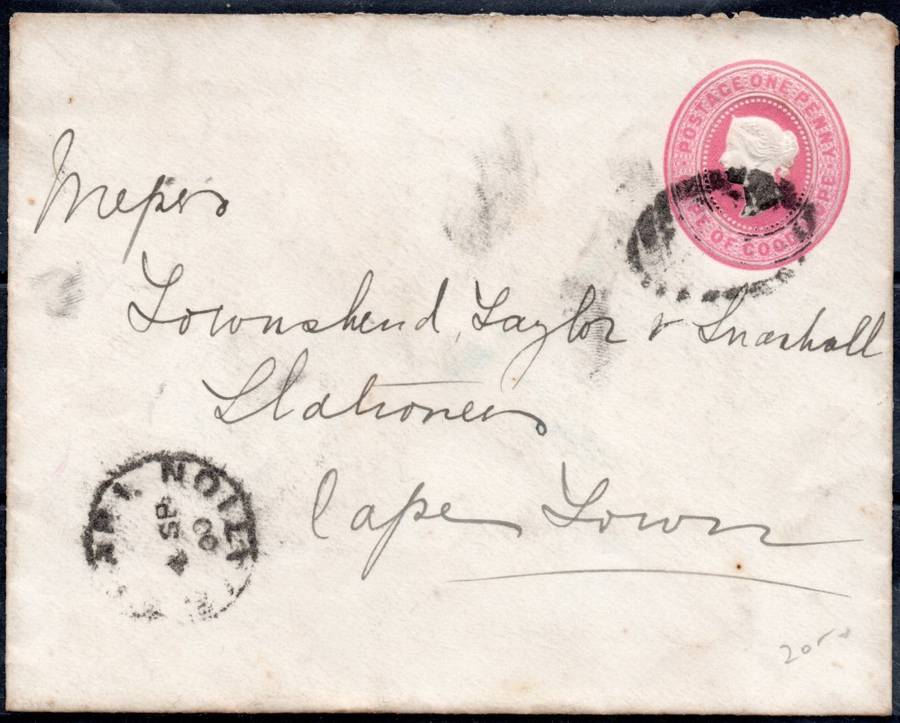 POSTAGE ONE PENNY
CAPE OF GOOD HOPE
Messrs
Townshend, Taylor & Snashall
Stationers
Cape Town
SP
00
20